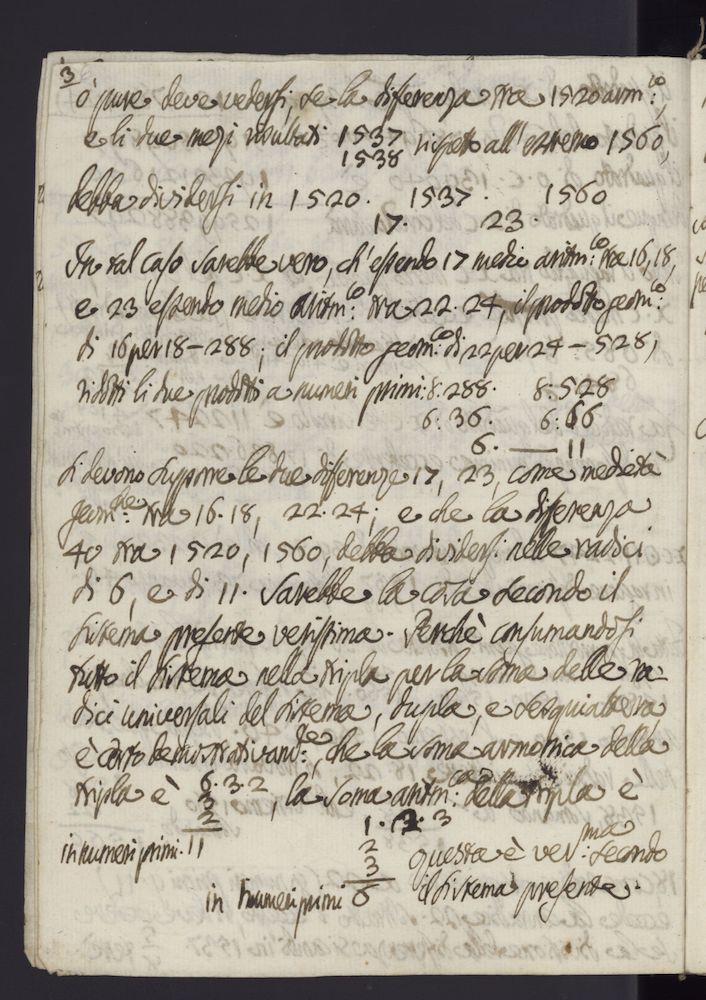 3
ò pure deve vedersi, se la differenza tra 1520 arm:co,
e li due mezi risultati 1537 rispetto all'estremo 1560,
1538
debba dividersi in 1520. 1537. 1560
17. 23
In tal caso sarebbe vero, ch'essendo 17 medio aritm:co tra 16, 18,
e 23 essendo medio aritm:co tra 22. 24, il prodotto geom:co
di 16 per 18 – 288; il prodotto geom:co di 22 per 24 – 528,
ridotti li due prodotti a numeri primi: 8. 288. 8: 528
6: 36. 6: 66
6. — 11
si devono supporre le due differenze 17, 23, come medietà
geom:che tra 16. 18, 22. 24; e che la differenza
40 tra 1520, 1560, debba dividersi nelle radici
di 6, e di 11. Sarebbe la cosa secondo il
sistema presente verissima. Perchè consumandosi
tutto il sistema nella tripla per la soma delle ra-
dici universali del sistema, dupla, e sesquialtera,
è certo demostrativam:te, che la soma armonica della
tripla è 6. 3. 2, la soma aritm:ca della tripla è
3
2
in numeri primi. 11
1. 2. 3
2
3
in numeri primi 6
questa è ver:ma secondo
il sistema presente.